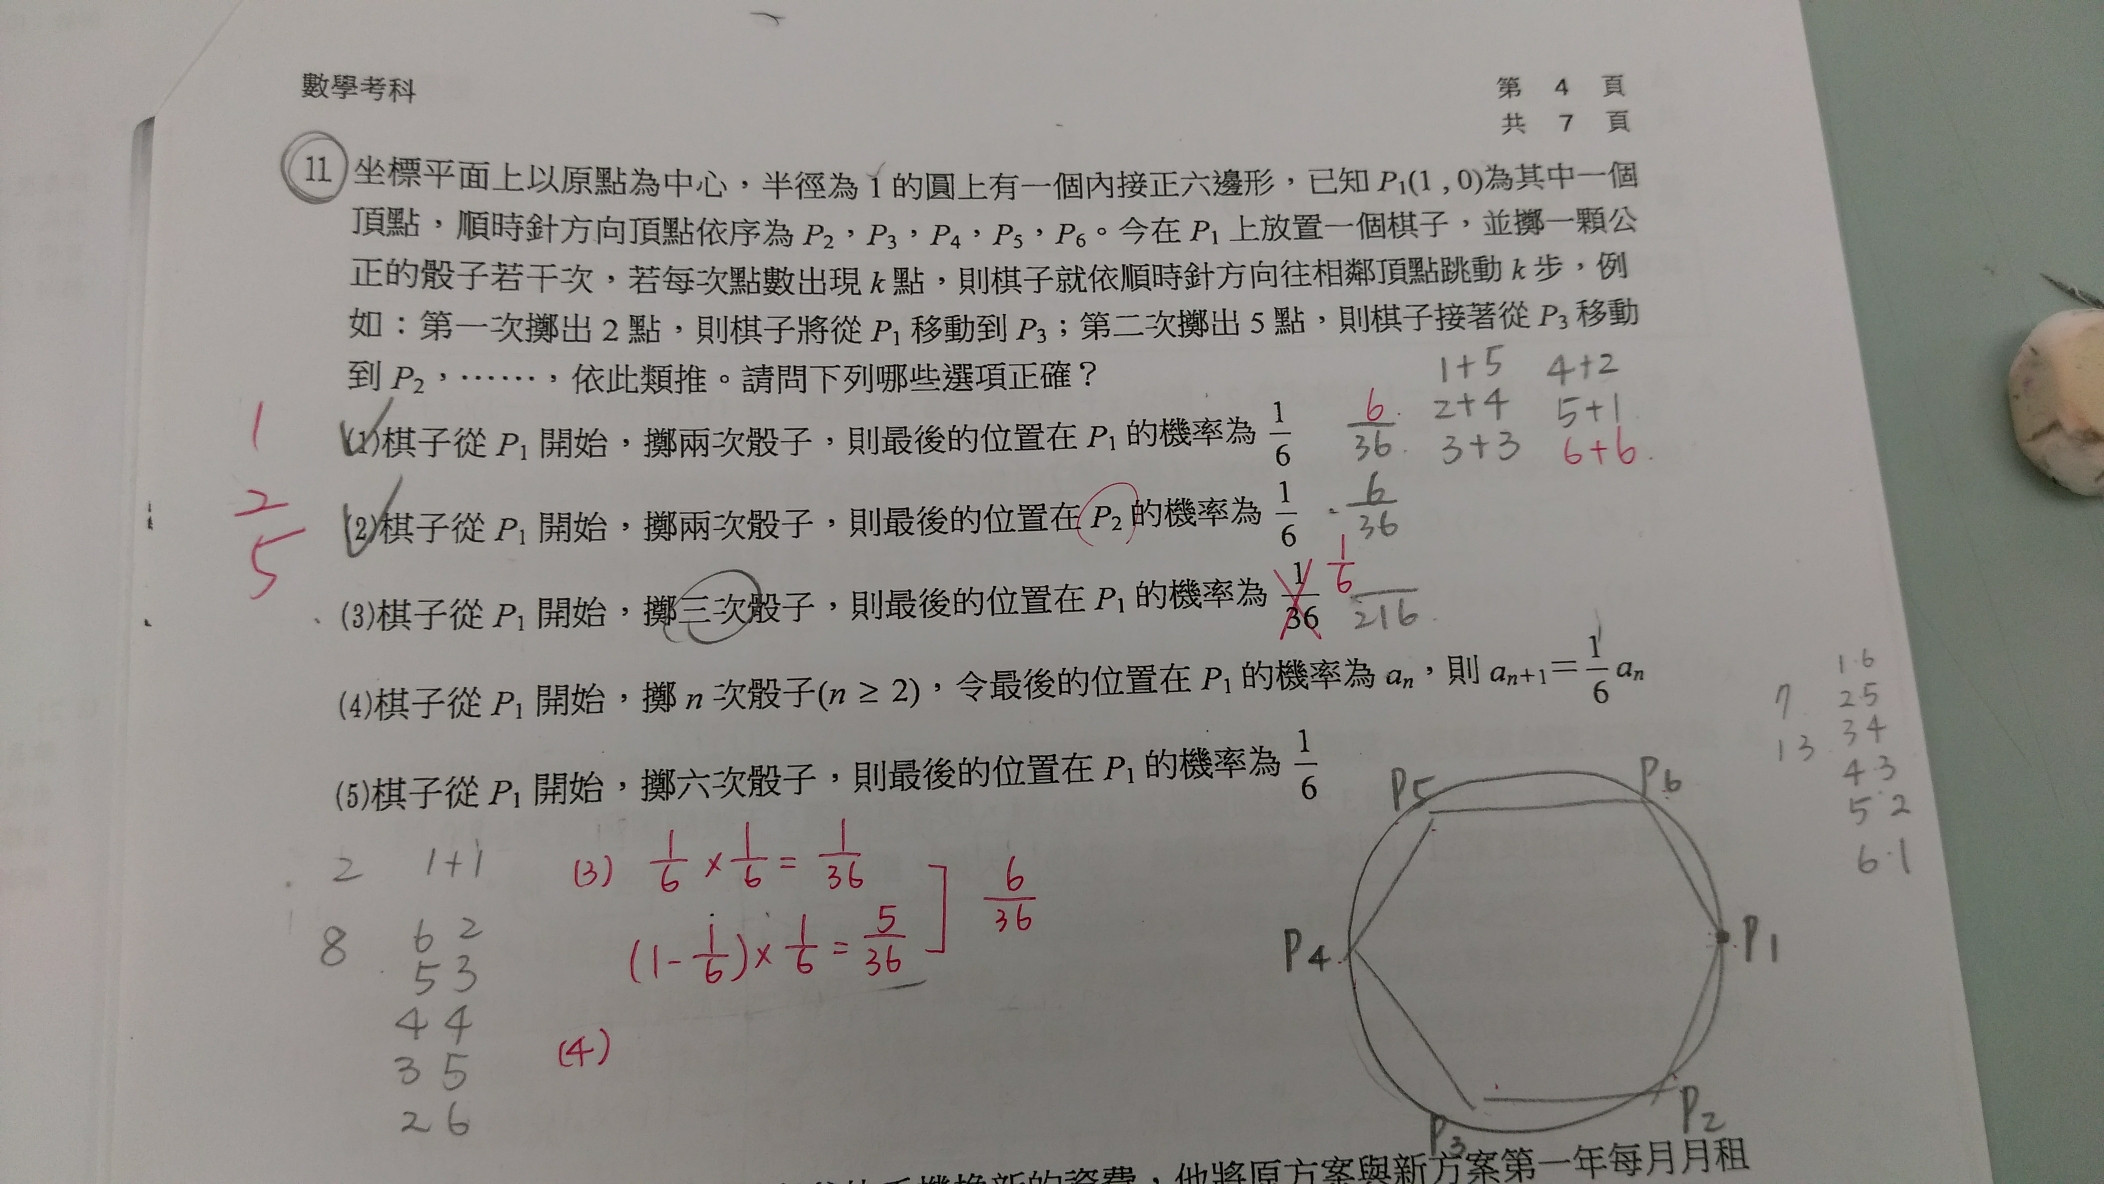 數學考科
第 4 頁
共 7 頁
11 坐標平面上以原點為中心，半徑為 1 的圓上有一個內接正六邊形，已知 P₁(1 , 0)為其中一個
頂點，順時針方向頂點依序為 P₂，P₃，P₄，P₅，P₆。今在 P₁ 上放置一個棋子，並擲一顆公
正的骰子若干次，若每次點數出現 k 點，則棋子就依順時針方向往相鄰頂點跳動 k 步，例
如：第一次擲出 2 點，則棋子將從 P₁ 移動到 P₃；第二次擲出 5 點，則棋子接著從 P₃ 移動
到 P₂，……，依此類推。請問下列哪些選項正確？
1+5 4+2
2+4 5+1
3+3 6+6
(1)棋子從 P₁ 開始，擲兩次骰子，則最後的位置在 P₁ 的機率為 1/6 6/36
(2)棋子從 P₁ 開始，擲兩次骰子，則最後的位置在 P₂ 的機率為 1/6 6/36
(3)棋子從 P₁ 開始，擲三次骰子，則最後的位置在 P₁ 的機率為 1/36 1/6 /216
(4)棋子從 P₁ 開始，擲 n 次骰子(n ≥ 2)，令最後的位置在 P₁ 的機率為 aₙ，則 aₙ₊₁＝1/6 aₙ
(5)棋子從 P₁ 開始，擲六次骰子，則最後的位置在 P₁ 的機率為 1/6
1
2
5
7
13
1·6
2 5
3 4
4·3
5·2
6·1
2 1+1
8 6 2
5 3
4 4
3 5
2 6
(3) 1/6 × 1/6 = 1/36
(1-1/6) × 1/6 = 5/36 ] 6/36
(4)
P5
P6
P4
P1
P3
P2
換新的資費，他將原方案與新方案第一年每月月租